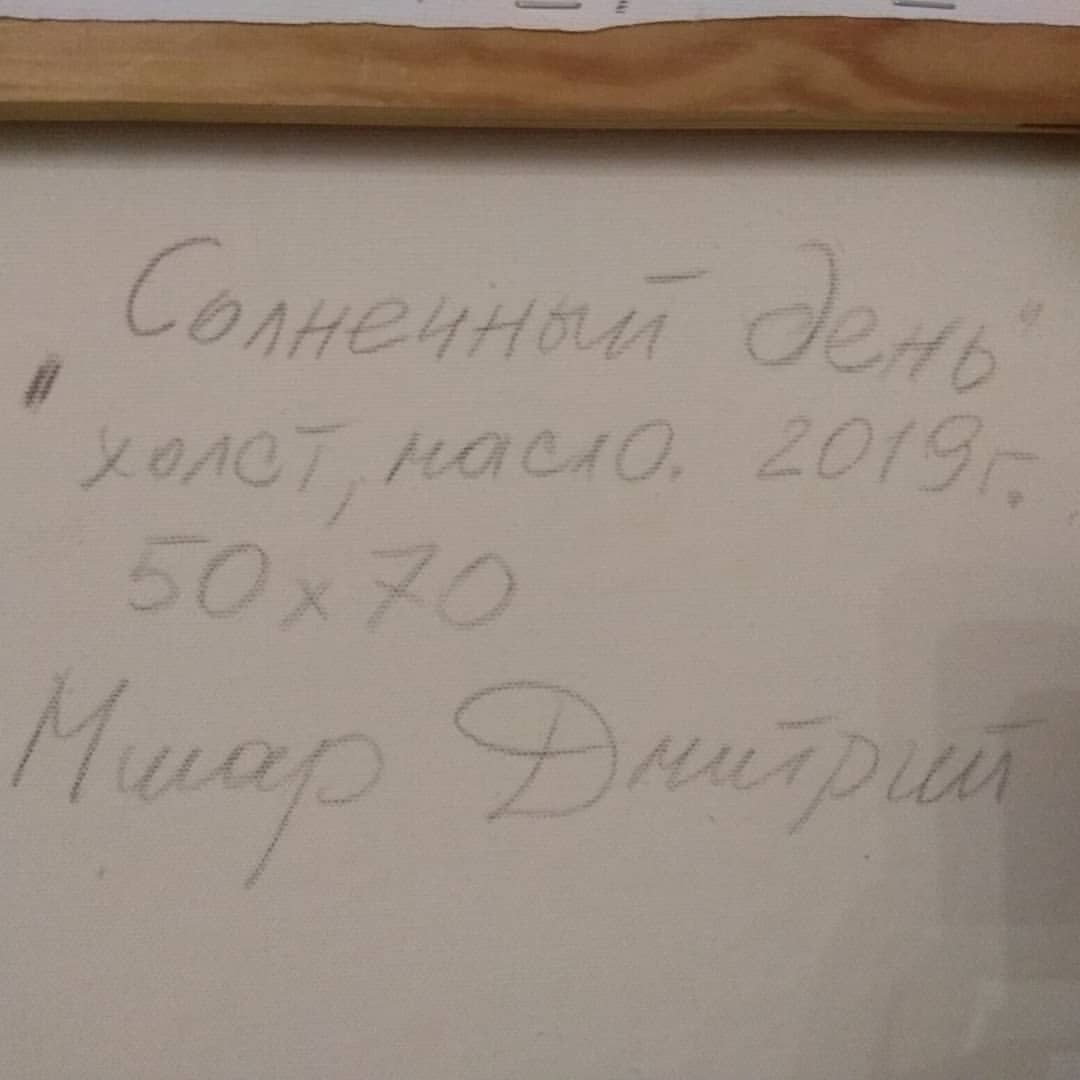 "Солнечный день"
холст, масло. 2019г.
50х70
Мшар Дмитрий